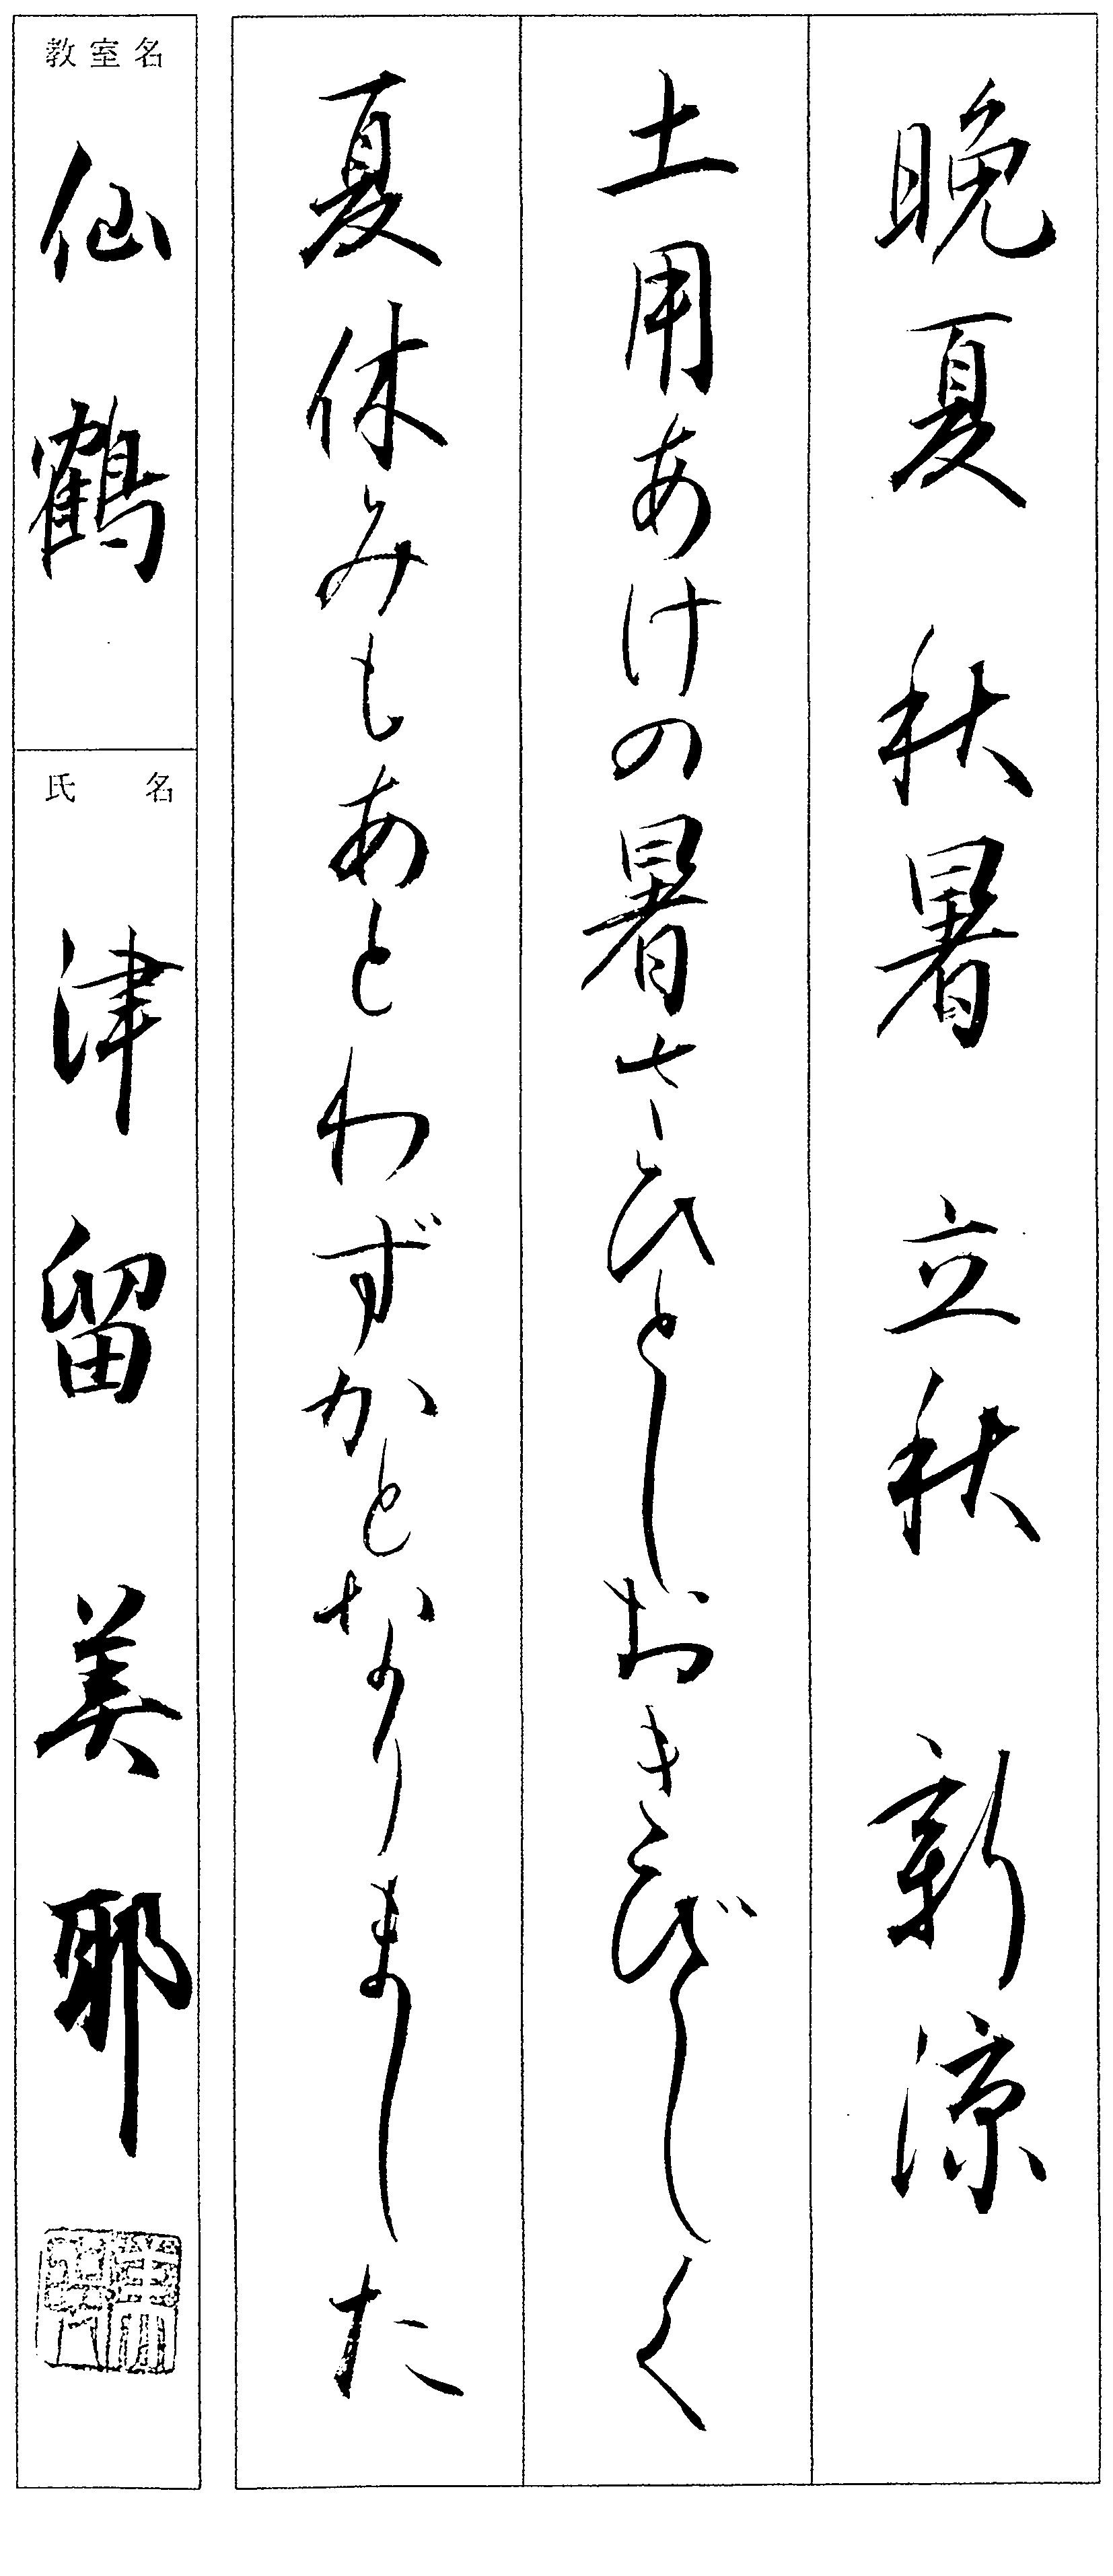 晩夏 秋暑 立秋 新涼
土用あけの暑さひとしおきびしく
夏休みもあとわずかとなりました
教室名
仙鶴
氏名
津留美耶